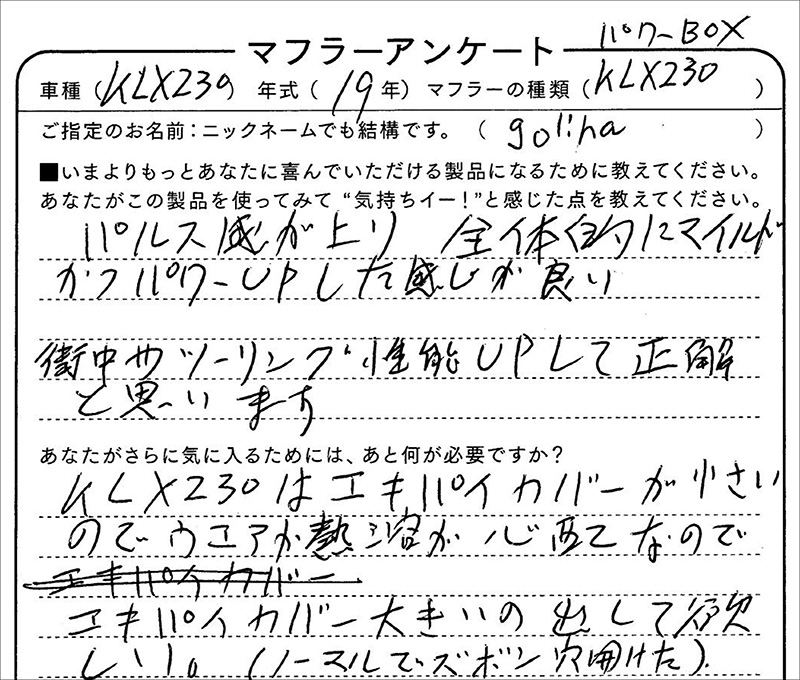 マフラーアンケート パワーBOX
車種（KLX230） 年式（19年）マフラーの種類（KLX230）
ご指定のお名前：ニックネームでも結構です。（golira）
■いまよりもっとあなたに喜んでいただける製品になるために教えてください。
あなたがこの製品を使ってみて“気持ちイー！”と感じた点を教えてください。
パルス感が上り 全体的にマイルド
かつパワーUPした感じが良い
街中やツーリング性能UPして正解
と思います
あなたがさらに気に入るためには、あと何が必要ですか？
KLX230はエキパイカバーが小さい
のでウエアが熱溶が心配なので
エキパイカバー
エキパイカバー大きいの出して欲
しい。（ノーマルでズボン穴開けた）.